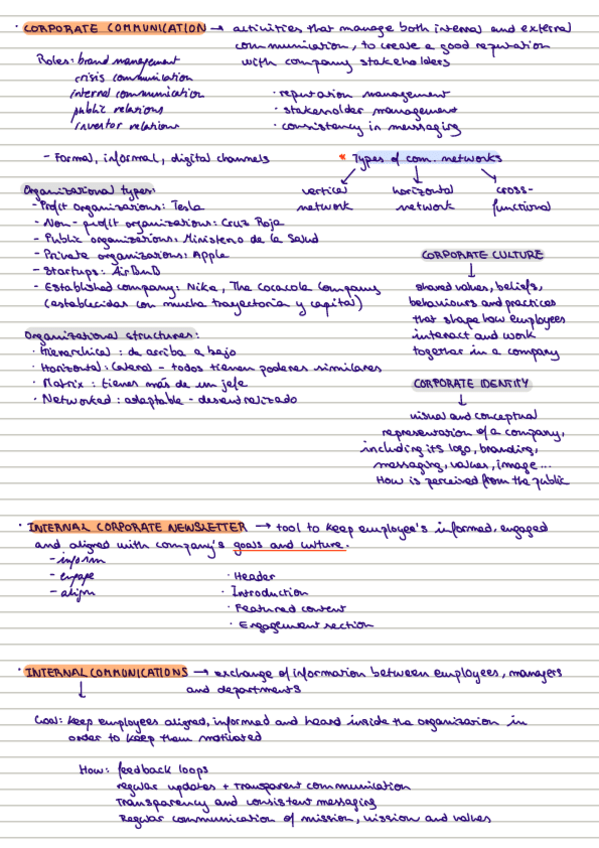 · CORPORATE COMMUNICATION → activities that manage both internal and external
communication, to create a good reputation
with company stakeholders
Roles: brand management
crisis communication
internal communication
public relations
investor relations
· reputation management
· stakeholder management
· consistency in messaging
- Formal, informal, digital channels
* Types of com. networks
vertical network
horizontal network
cross-functional
Organizational types:
- Profit organizations: Tesla
- Non-profit organizations: Cruz Roja
- Public organizations: Ministerio de la Salud
- Private organizations: Apple
- Startups: AirBnB
- Established company: Nike, The Cocacola Company
(establecidas con mucha trayectoria y capital)
CORPORATE CULTURE
↓
shared values, beliefs,
behaviours and practices
that shape how employees
interact and work
together in a company
Organizational structures:
· Hierarchical: de arriba a bajo
· Horizontal: lateral - todos tienen poderes similares
· Matrix: tienes más de un jefe
· Networked: adaptable - desentralizado
CORPORATE IDENTITY
↓
visual and conceptual
representation of a company,
including its logo, branding,
messaging, values, image...
How is perceived from the public
· INTERNAL CORPORATE NEWSLETTER → tool to keep employee's informed, engaged
and aligned with company's goals and culture.
- inform
- engage
- align
· Header
· Introduction
· Featured content
· Engagement section
· INTERNAL COMMUNICATIONS → exchange of information between employees, managers
and departments
↓
Goal: keep employees aligned, informed and heard inside the organization in
order to keep them motivated
How: feedback loops
regular updates + transparent communication
Transparency and consistent messaging
Regular communication of mission, vission and values